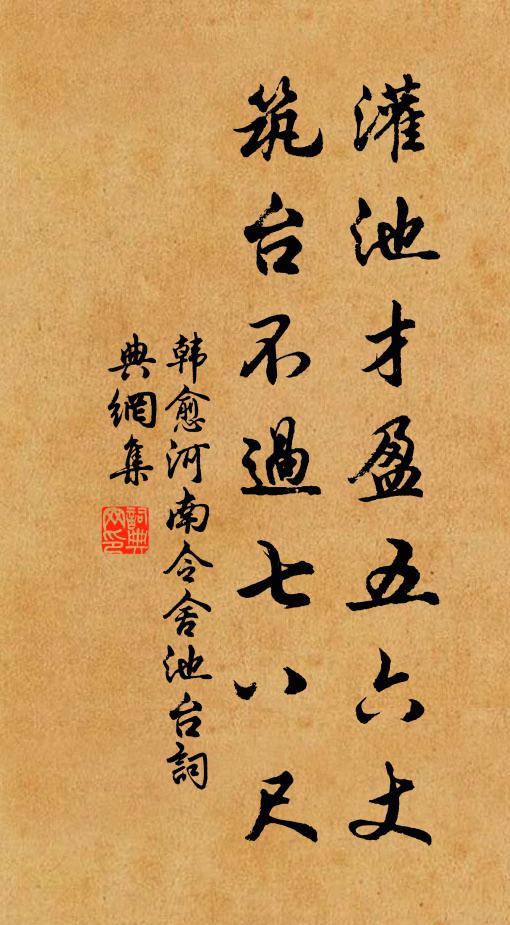 灌池才盈五六丈
筑台不過七八尺
韩愈河南令舍池台詞
典網集
詞典
网印